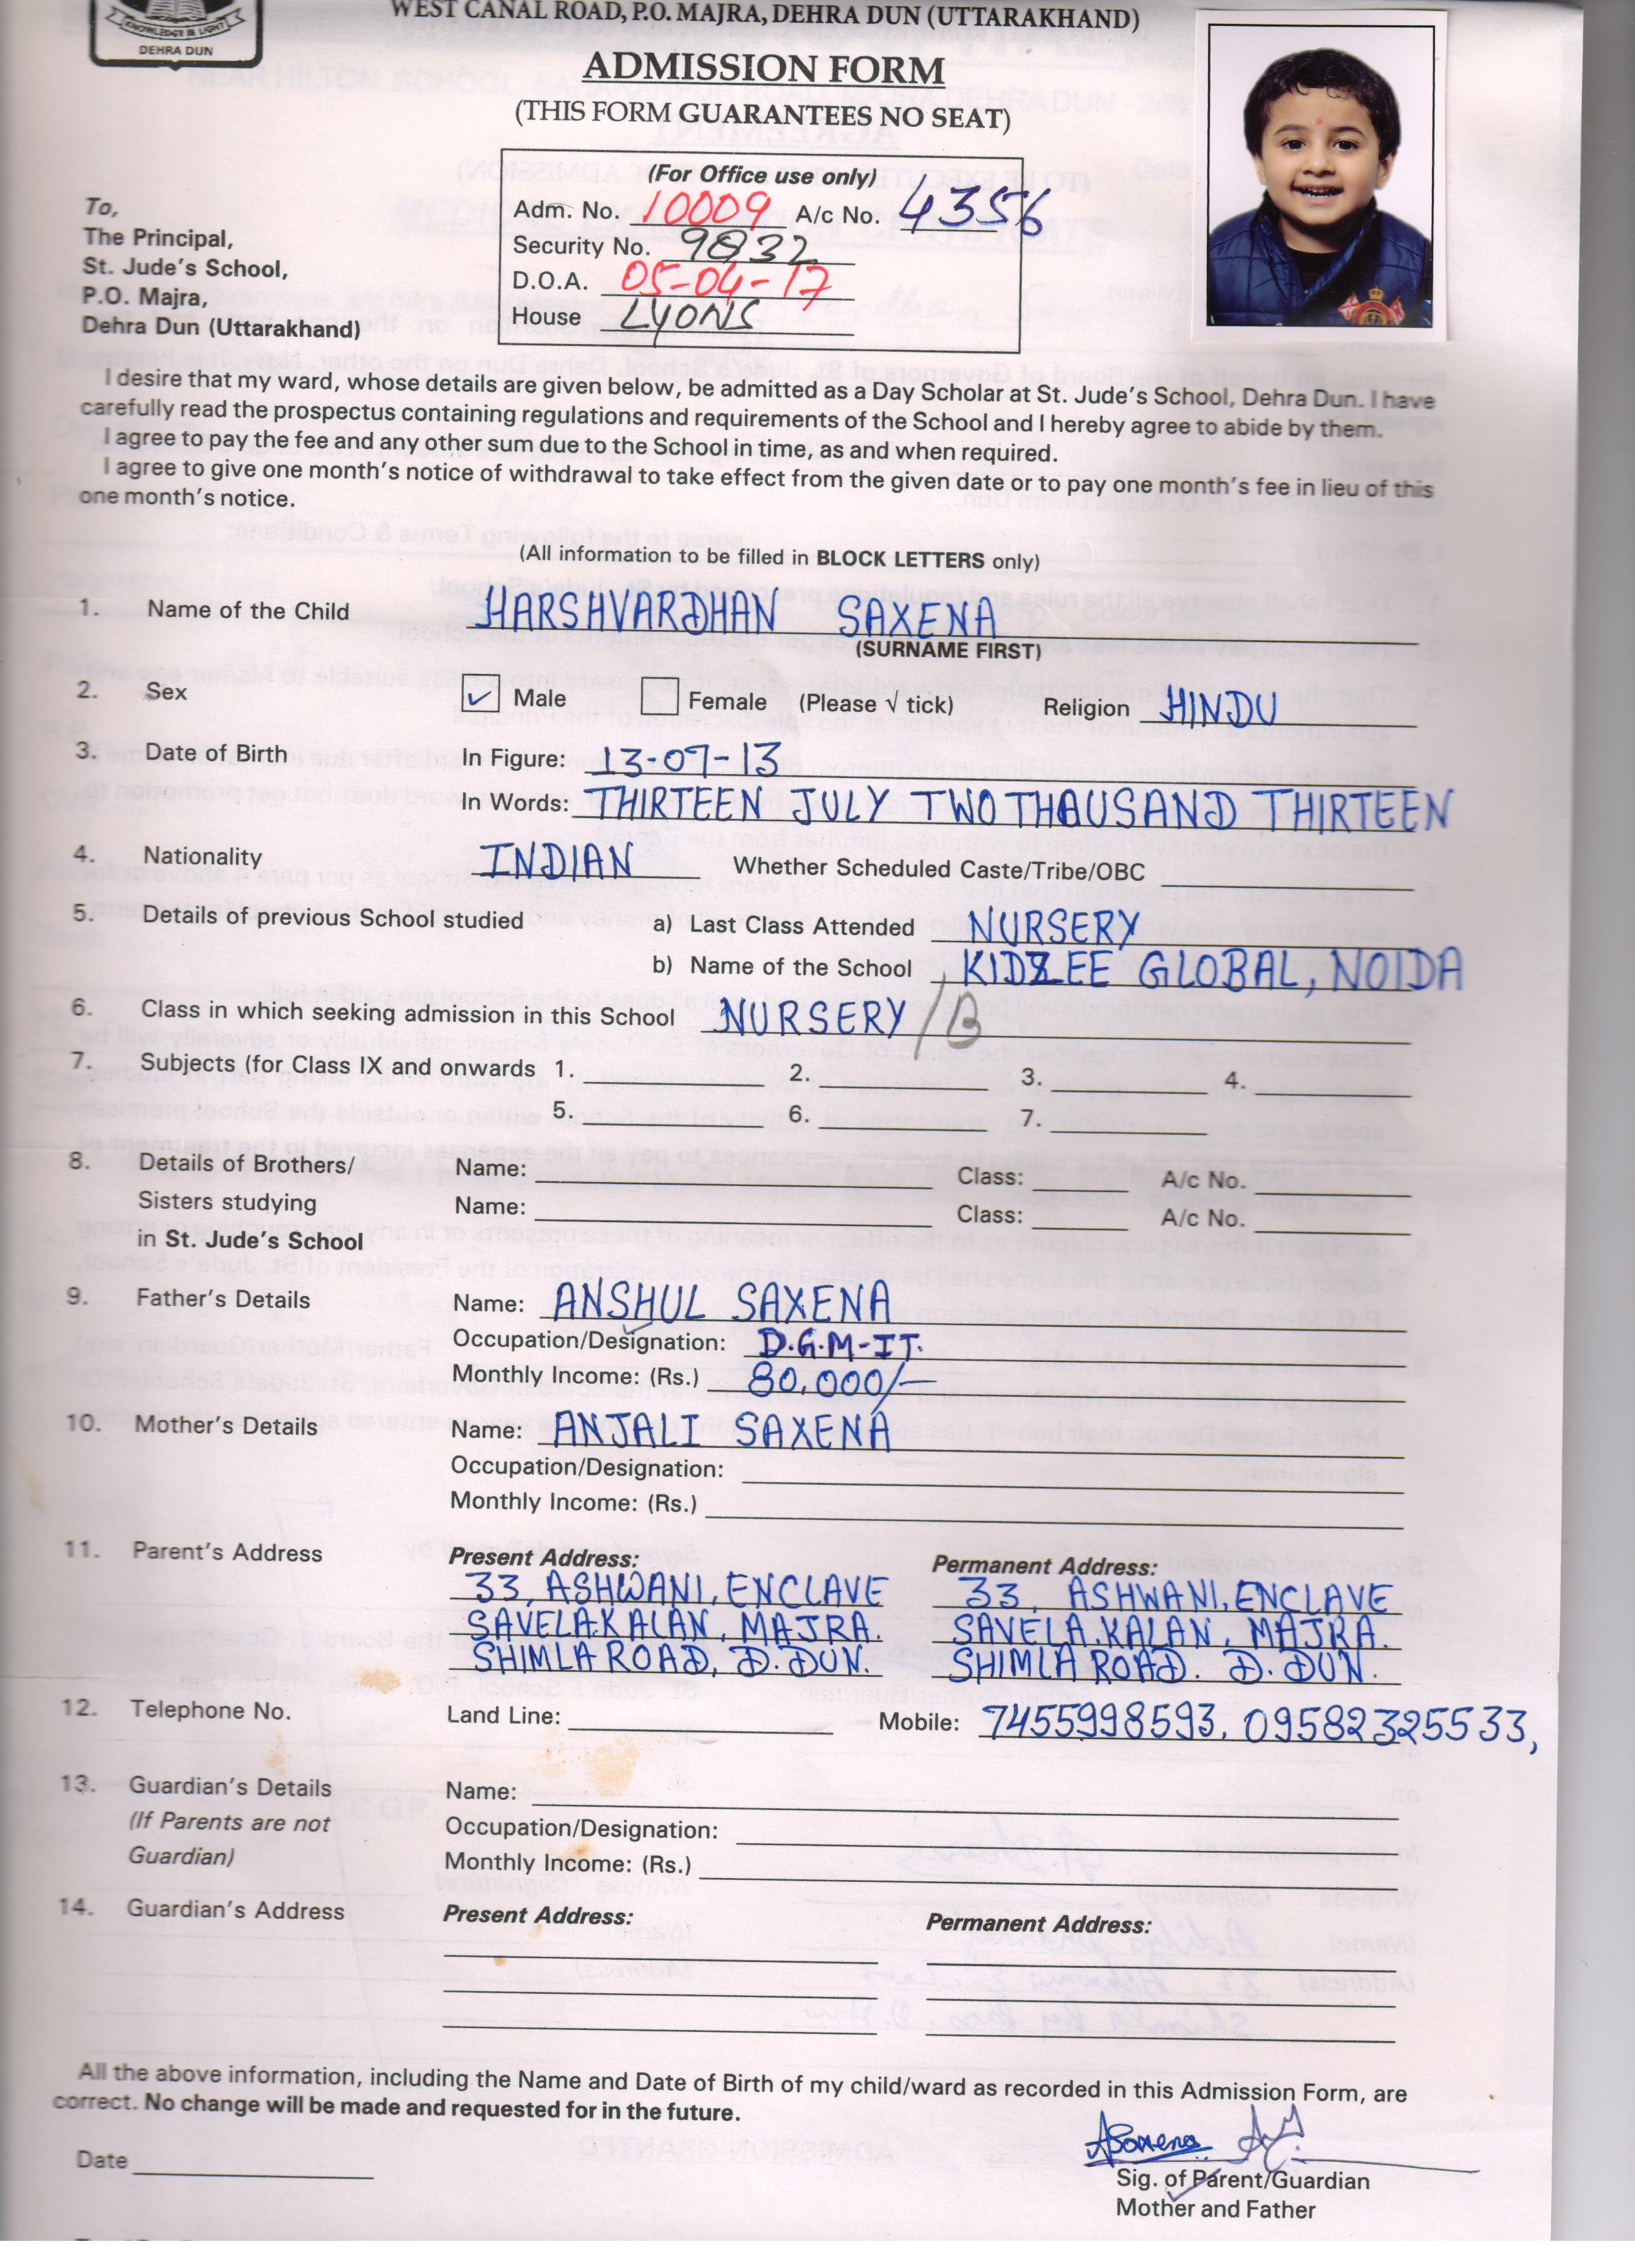 KNOWLEDGE IS LIGHT
DEHRA DUN
WEST CANAL ROAD, P.O. MAJRA, DEHRA DUN (UTTARAKHAND)
ADMISSION FORM
(THIS FORM GUARANTEES NO SEAT)
(For Office use only)
Adm. No. 10009 A/c No. 4356
Security No. 9832
D.O.A. 05-04-17
House LYONS
To,
The Principal,
St. Jude's School,
P.O. Majra,
Dehra Dun (Uttarakhand)
I desire that my ward, whose details are given below, be admitted as a Day Scholar at St. Jude's School, Dehra Dun. I have
carefully read the prospectus containing regulations and requirements of the School and I hereby agree to abide by them.
I agree to pay the fee and any other sum due to the School in time, as and when required.
I agree to give one month's notice of withdrawal to take effect from the given date or to pay one month's fee in lieu of this
one month's notice.
(All information to be filled in BLOCK LETTERS only)
1. Name of the Child HARSHVARDHAN SAXENA
(SURNAME FIRST)
2. Sex Male Female (Please √ tick) Religion HINDU
3. Date of Birth In Figure: 13-07-13
In Words: THIRTEEN JULY TWO THAUSAND THIRTEEN
4. Nationality INDIAN Whether Scheduled Caste/Tribe/OBC
5. Details of previous School studied a) Last Class Attended NURSERY
b) Name of the School KIDZEE GLOBAL, NOIDA
6. Class in which seeking admission in this School NURSERY/B
7. Subjects (for Class IX and onwards 1. 2. 3. 4.
5. 6. 7.
8. Details of Brothers/ Name: Class: A/c No.
Sisters studying Name: Class: A/c No.
in St. Jude's School
9. Father's Details Name: ANSHUL SAXENA
Occupation/Designation: D.G.M-IT.
Monthly Income: (Rs.) 80,000/-
10. Mother's Details Name: ANJALI SAXENA
Occupation/Designation:
Monthly Income: (Rs.)
11. Parent's Address Present Address: Permanent Address:
33, ASHWANI, ENCLAVE 33, ASHWANI, ENCLAVE
SAVELA.KALAN, MAJRA. SAVELA.KALAN, MAJRA.
SHIMLA ROAD, D.DUN. SHIMLA ROAD. D.DUN.
12. Telephone No. Land Line: Mobile: 7455998593, 09582325533,
13. Guardian's Details Name:
(If Parents are not Occupation/Designation:
Guardian) Monthly Income: (Rs.)
14. Guardian's Address Present Address: Permanent Address:
All the above information, including the Name and Date of Birth of my child/ward as recorded in this Admission Form, are
correct. No change will be made and requested for in the future.
ASaxena
Date
Sig. of Parent/Guardian
Mother and Father